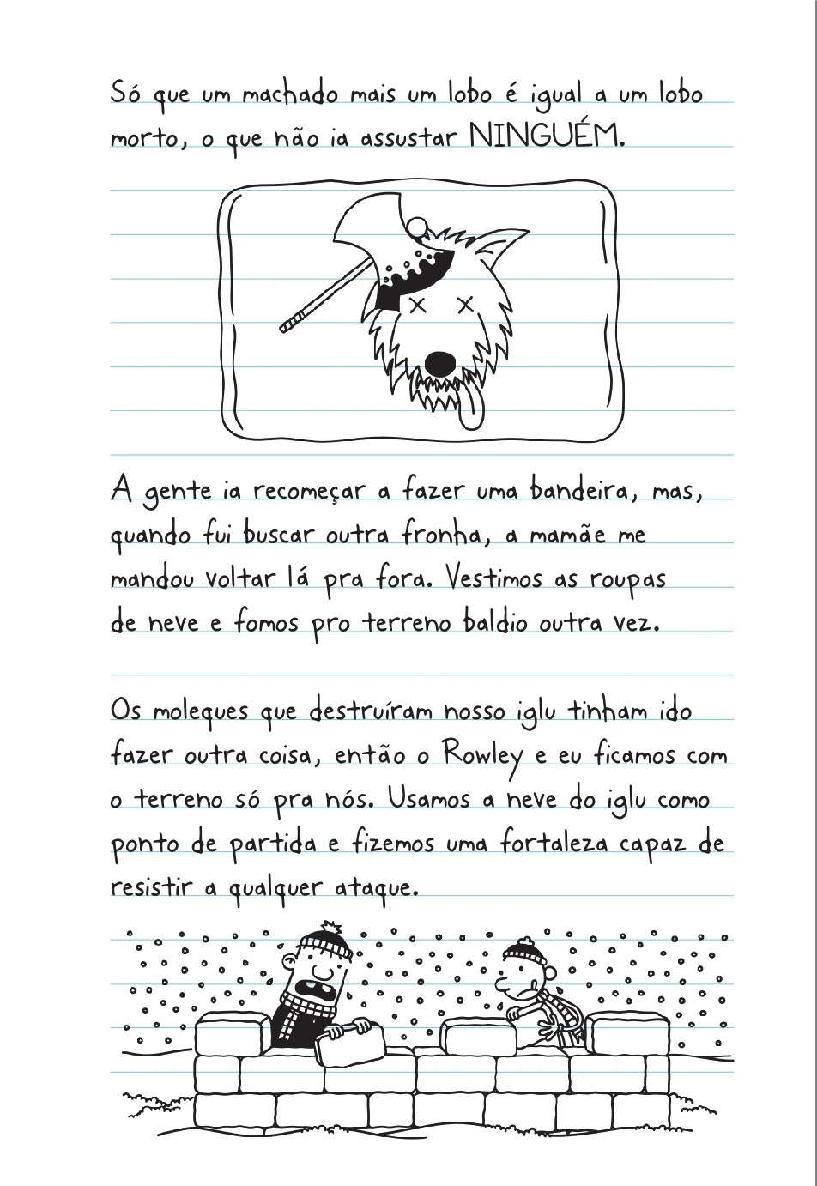 Só que um machado mais um lobo é igual a um lobo
morto, o que não ia assustar NINGUÉM.
A gente ia recomeçar a fazer uma bandeira, mas,
quando fui buscar outra fronha, a mamãe me
mandou voltar lá pra fora. Vestimos as roupas
de neve e fomos pro terreno baldio outra vez.
Os moleques que destruíram nosso iglu tinham ido
fazer outra coisa, então o Rowley e eu ficamos com
o terreno só pra nós. Usamos a neve do iglu como
ponto de partida e fizemos uma fortaleza capaz de
resistir a qualquer ataque.